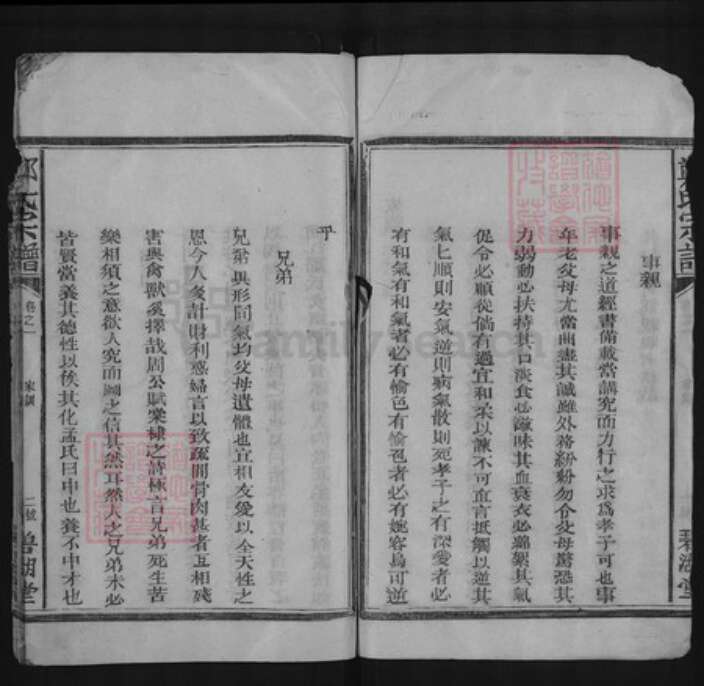 鄭氏宗譜
碧湖堂
事親
事親之道經書備載當講究而力行之求爲孝子可也事
年老父母尤當曲盡其誠雖外務紛紛勿令父母驚恐其
力弱動必扶持其口淡食必滋味其血衰衣必綿絮其氣
促令必順從倘有過宜和柔以諫不可直言抵觸以逆其
氣氣順則安氣逆則病氣散則死孝子之有深愛者必
有和氣有和氣者必有愉色有愉色者必有婉容烏可逆
乎
兄弟
兄弟與形同氣均父母遺體也宜相友愛以全天性之
恩今人多計財利惑婦言以致疏間骨肉甚者互相殘
害與禽獸奚擇哉周公賦棠棣之詩極言兄弟死生苦
樂相須之意欲人究而圖之信其然耳然人之兄弟未必
皆賢當養其德性以俟其化孟氏曰中也養不中才也
鄭氏宗譜
卷之一
家訓
二號
碧湖堂
FamilySearch